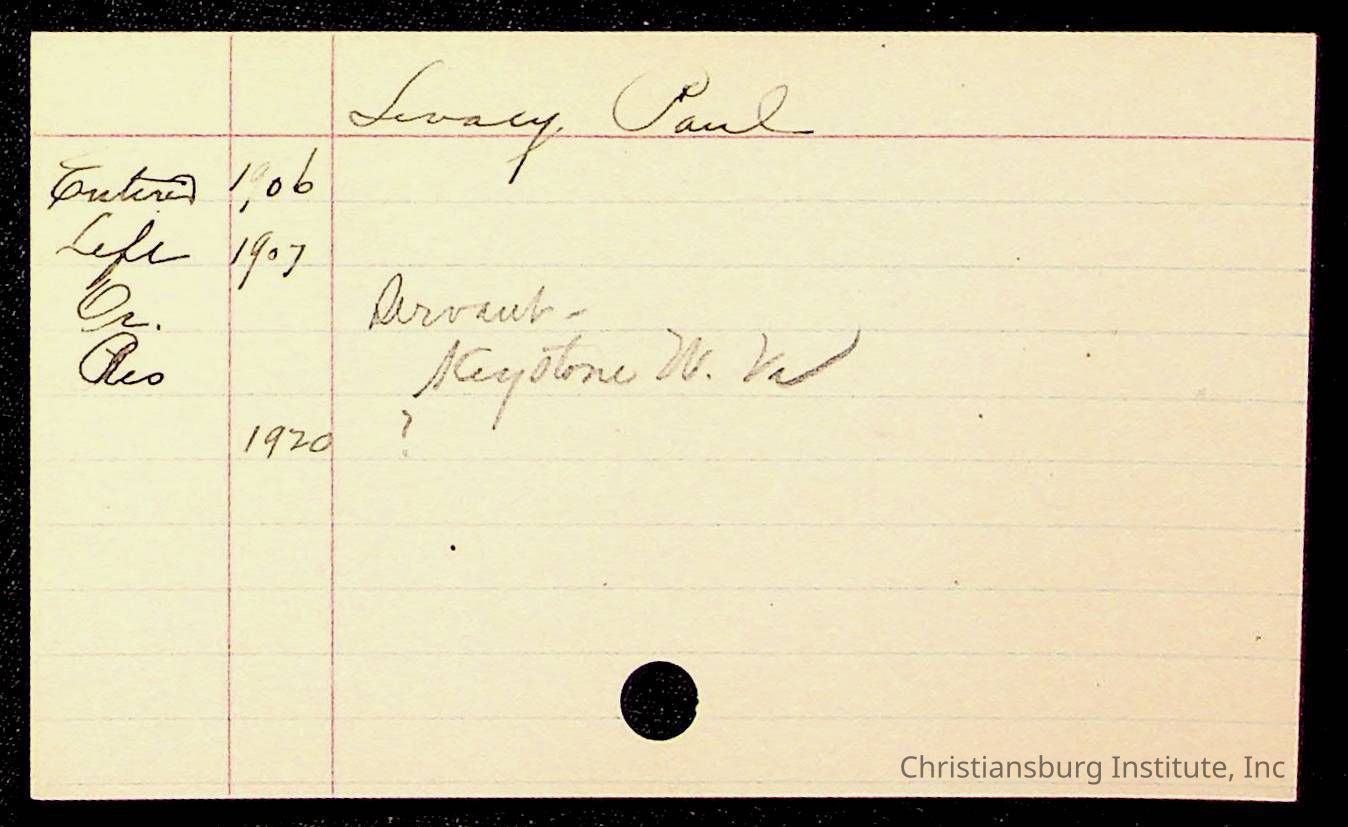 Livasy, Paul
Entered 1906
Left 1907
Oc. Servant-
Res Keystone W. Va
1920 ?
Christiansburg Institute, Inc